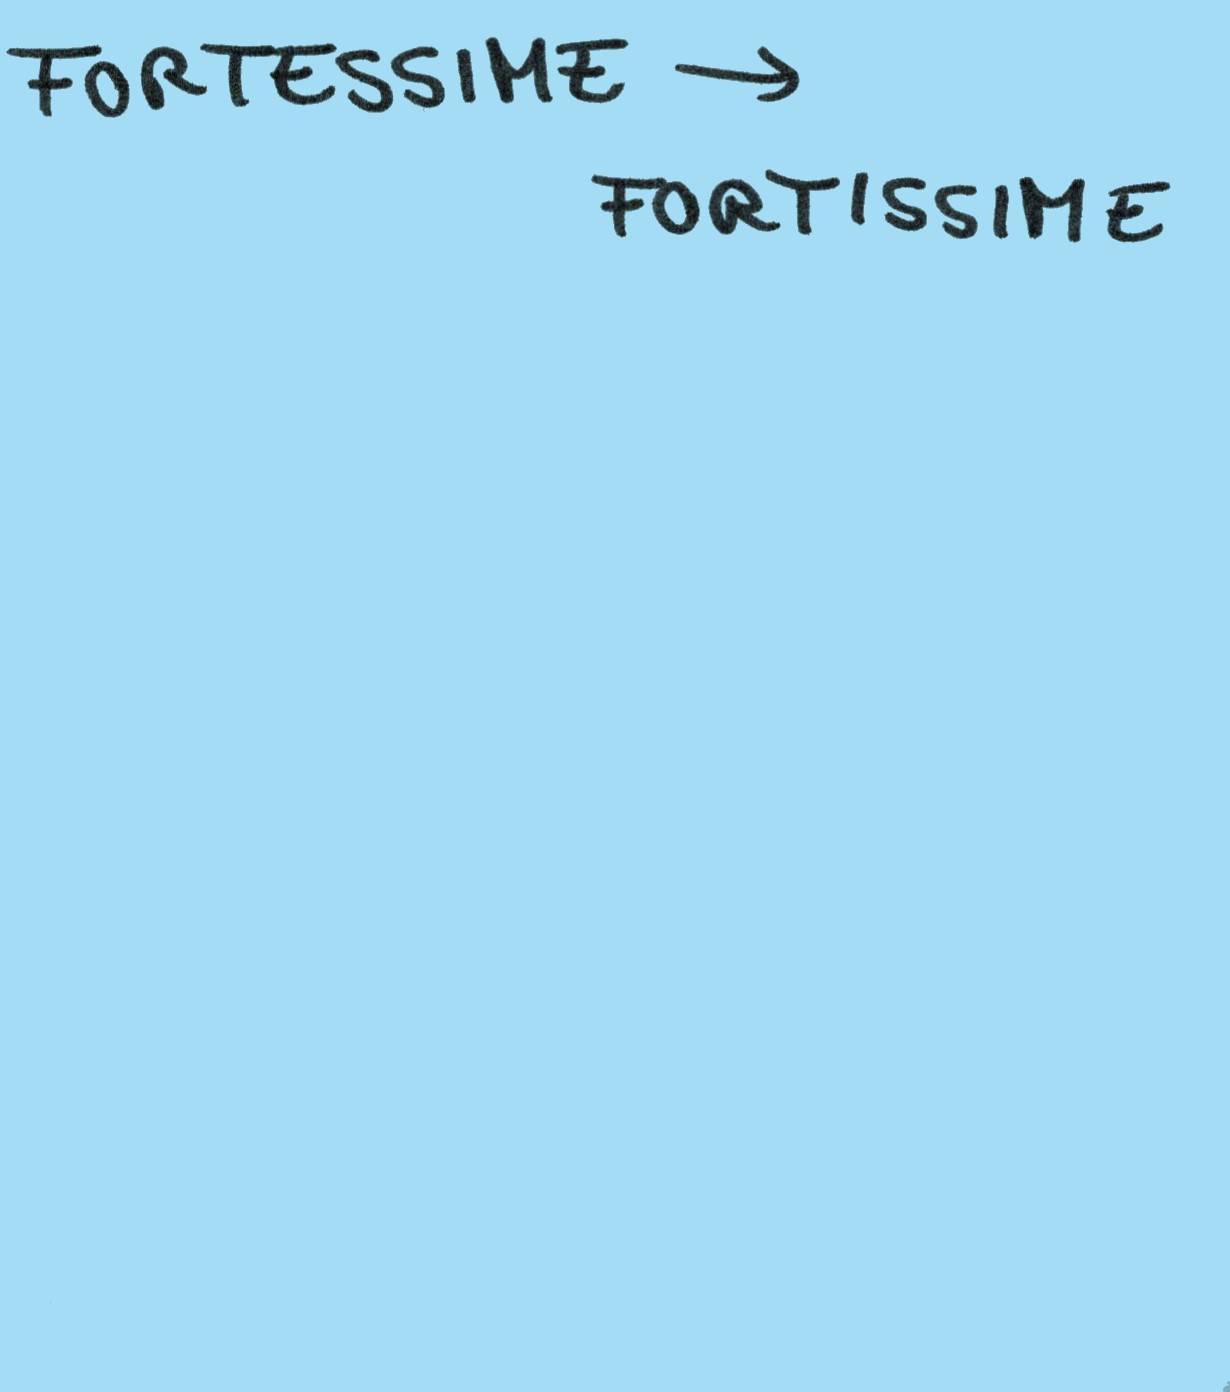 FORTESSIME →
FORTISSIME